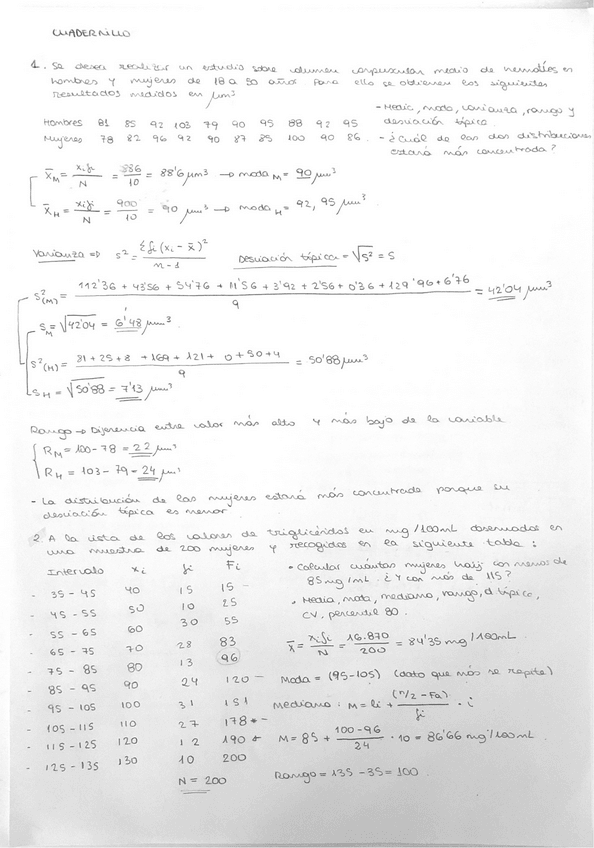 CUADERNILLO
1. Se desea realizar un estudio sobre volumen corpuscular medio de hematíes en
hombres y mujeres de 18 a 50 años. Para ello se obtienen los siguientes
resultados medidos en μm³
- Media, moda, varianza, rango y
desviación típica.
Hombres 81 85 92 103 79 90 95 88 92 95
Mujeres 78 82 96 92 90 87 85 100 90 86.
- ¿Cuál de las dos distribuciones
estará más concentrada?
x̄M = xifi / N = 886 / 10 = 88'6 μm³ → moda M = 90 μm³
x̄H = xifi / N = 900 / 10 = 90 μm³ → moda H = 92, 95 μm³
Varianza => s² = Σfi (xi - x̄)² / n-1 Desviación típica = √s² = s
s²(M) = 112'36 + 43'56 + 54'76 + 11'56 + 3'92 + 2'56 + 0'36 + 129'96 + 6'76 / 9 = 42'04 μm³
SM = √42'04 = 6'48 μm³
s²(H) = 81 + 25 + 8 + 169 + 121 + 0 + 50 + 4 / 9 = 50'88 μm³
SH = √50'88 = 7'13 μm³
Rango → Diferencia entre valor más alto y más bajo de la variable
RM = 100 - 78 = 22 μm³
RH = 103 - 79 = 24 μm³
- La distribución de las mujeres estará más concentrada porque su
desviación típica es menor.
2 A la vista de los valores de triglicéridos en mg/100mL observados en
una muestra de 200 mujeres y recogidos en la siguiente tabla:
Intervalo xi fi Fi
- 35 - 45 40 15 15 -
- 45 - 55 50 10 25
- 55 - 65 60 30 55
- 65 - 75 70 28 83
- 75 - 85 80 13 96
- 85 - 95 90 24 120 -
- 95 - 105 100 31 151
- 105 - 115 110 27 178 * -
- 115 - 125 120 12 190 *
- 125 - 135 130 10 200
N = 200
• Calcular cuántas mujeres hay con menos de
85 mg/mL. ¿Y con más de 115?
• Media, moda, mediana, rango, d típica,
CV, percentil 80.
x̄ = xifi / N = 16.870 / 200 = 84'35 mg/100mL.
Moda = (95-105) (dato que más se repite)
Mediana: M = li + (n/2 - Fa) / fi · i
M = 85 + 100-96 / 24 · 10 = 86'66 mg/100mL
Rango = 135 - 35 = 100.